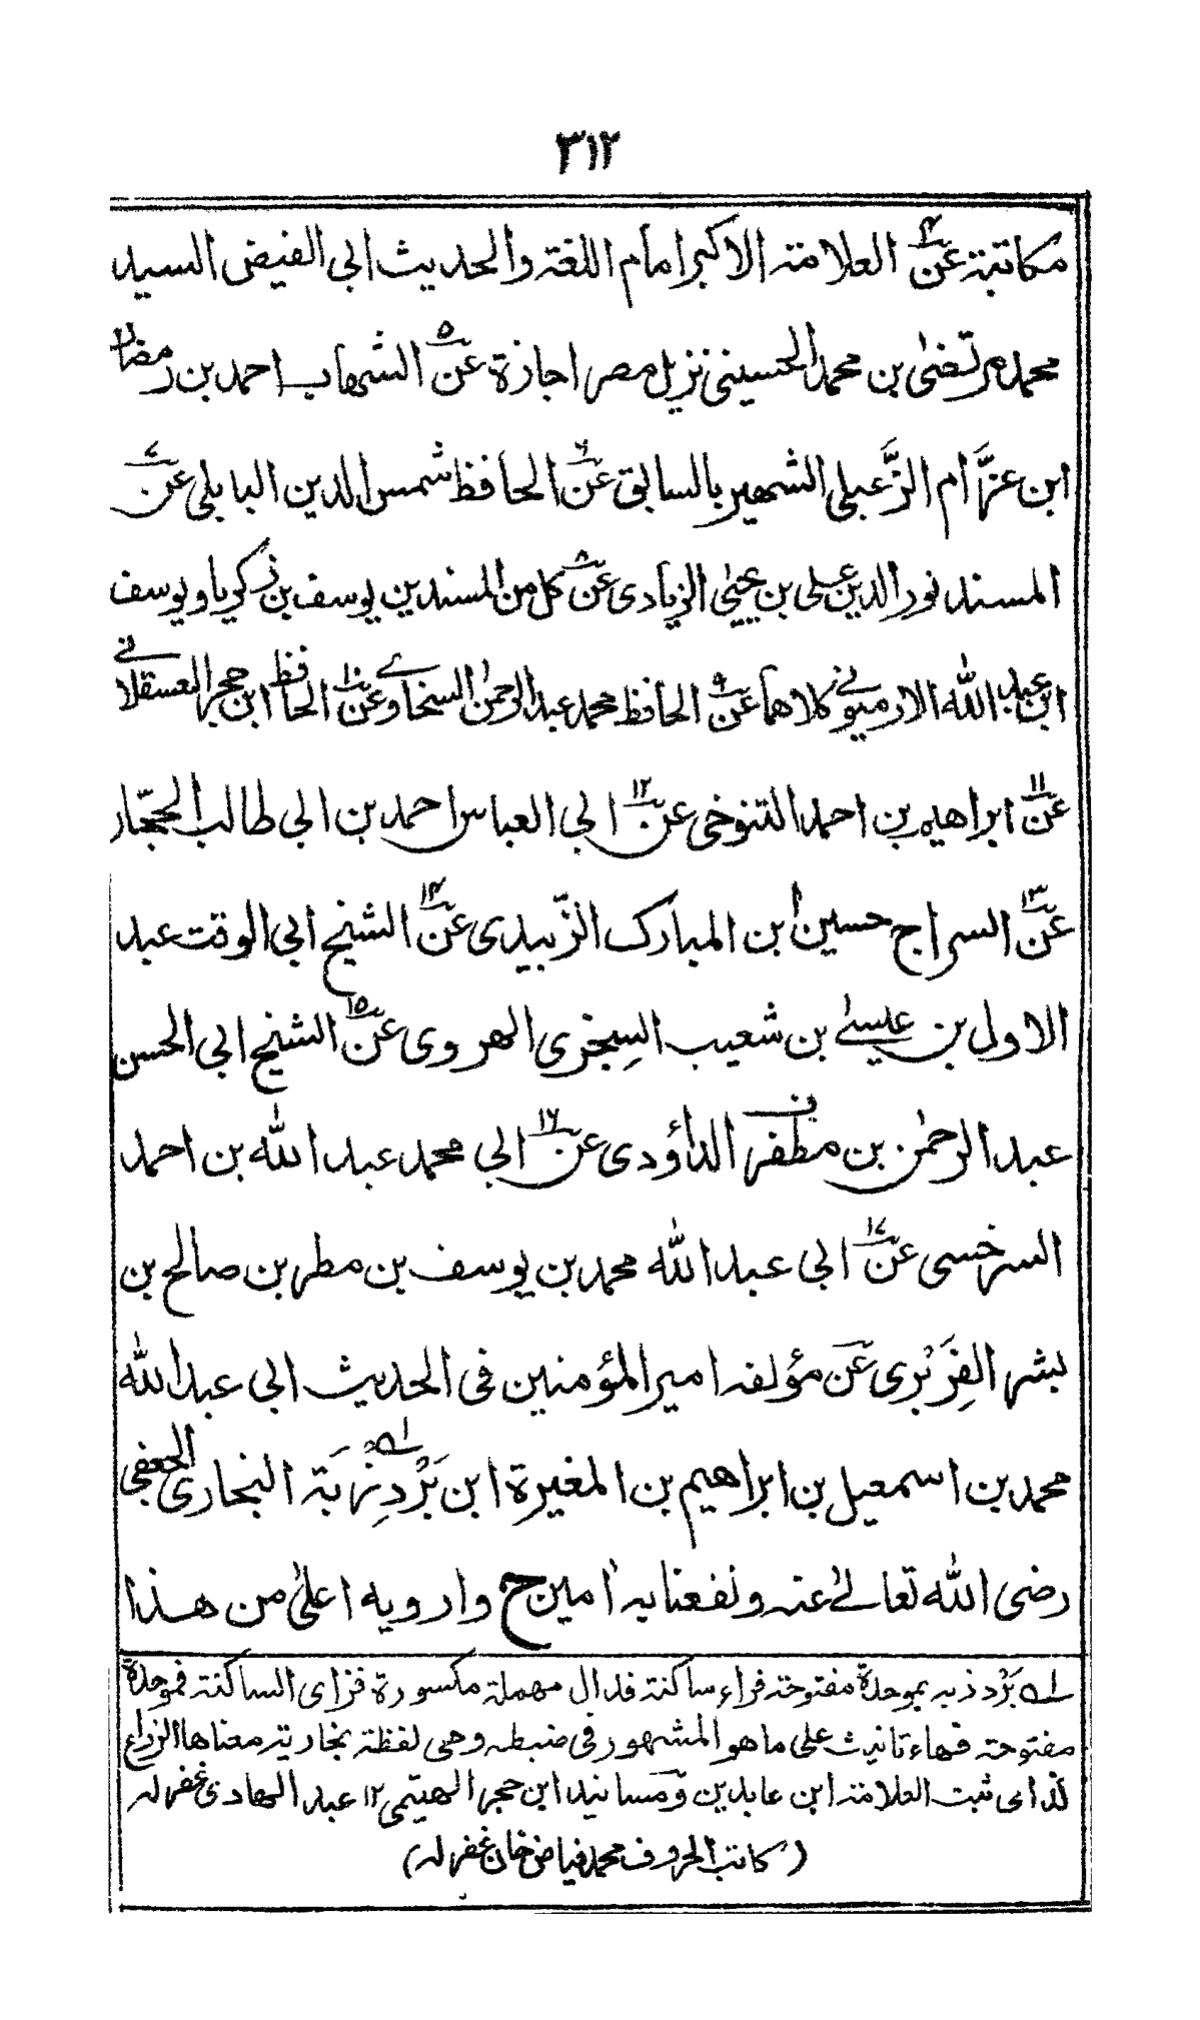 ٣١٢
مكاتبة عن۴ العلامته الاكبر امام اللغته والحديث ابى الفيض السيد
محمد مرتضىٰ بن محمد الحسينى نزيل مصر اجازة عن۵ الشهاب احمد بن رمضان
ابن عزّام الزَّعبلى الشهير بالسابق عن۶ الحافظ شمس الدين البابلى عن۷
المسند نور الدين على بن يحيىٰ الزيادى عن۸ كل من المسندين يوسف بن زكريا ويوسف
ابن عبد الله الارميونى كلاهما عن۹ الحافظ محمد عبد الرحمٰن السخاوى عن۱۰ الحافظ ابن حجر العسقلانى
عن۱۱ ابراهيم بن احمد التنوخى عن۱۲ ابى العباس احمد بن ابى طالب الحجّار
عن۱۳ السراج حسين ابن المبارك الزّبيدى عن۱۴ الشيخ ابى الوقت عبد
الاول بن عيسىٰ بن شعيب السِجزى الهروى عن۱۵ الشيخ ابى الحسن
عبد الرحمٰن بن مظفر الداؤدى عن۱۶ ابى محمد عبد الله بن احمد
السرخسى عن۱۷ ابى عبد الله محمد بن يوسف بن مطر بن صالح بن
بشر الفِرَبْرى عن مؤلفه امير المؤمنين فى الحديث ابى عبد الله
محمد بن اسمعيل بن ابراهيم بن المغيرة ابن بَرْدِزبَة البخارى الجعفى
رضى الله تعالىٰ عنه ونفعنا به اٰمين ح وارويه اعلىٰ من هذا
لـه بَرْدذبه بموحدة مفتوحته فراء ساكنته فدال مهملة مكسورة فزاى الساكنته فموحدة
مفتوحته فهاء تانيث على ما هو المشهور فى ضبطه وهى لفظته بخاريته معناها الزراع
كذا فى ثبت العلامته ابن عابدين ومسانيد ابن حجر الهيتمى ۱۲ عبد الهادى غفرله
(كاتب الحروف محمد فياض خان غفرله)